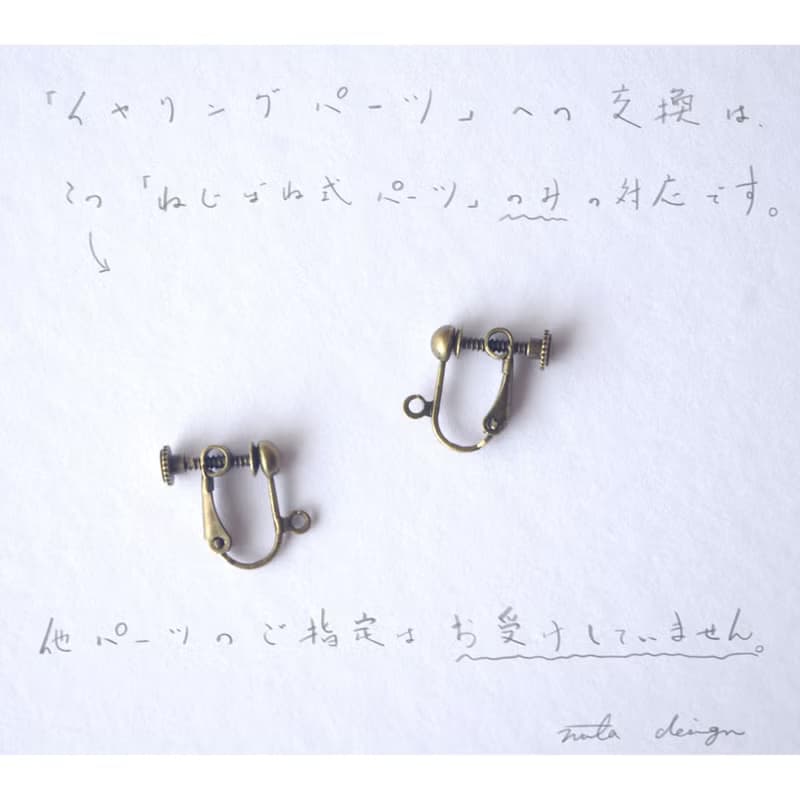 「イヤリングパーツ」への交換は、
この「ねじばね式パーツ」のみの対応です。
他パーツのご指定はお受けしていません。
nata design